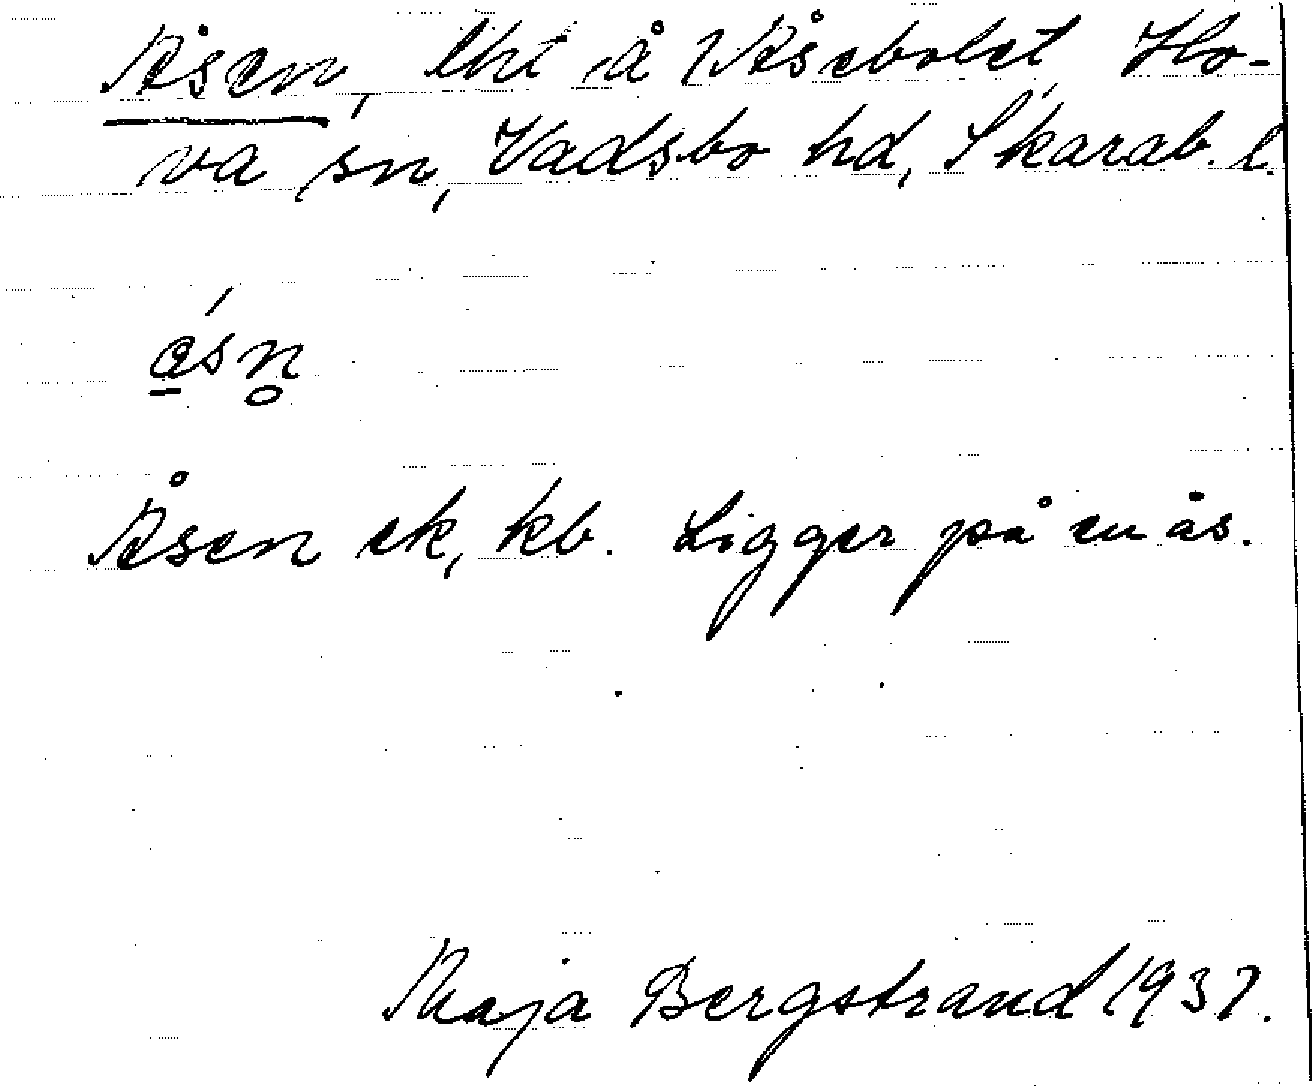 Åsen, lht å Åsebolet Ho-
va sn, Vadsbo hd, Skarab. l.
ásn̥
Åsen ek, kb. Ligger på en ås.
Maja Bergstrand 1937.